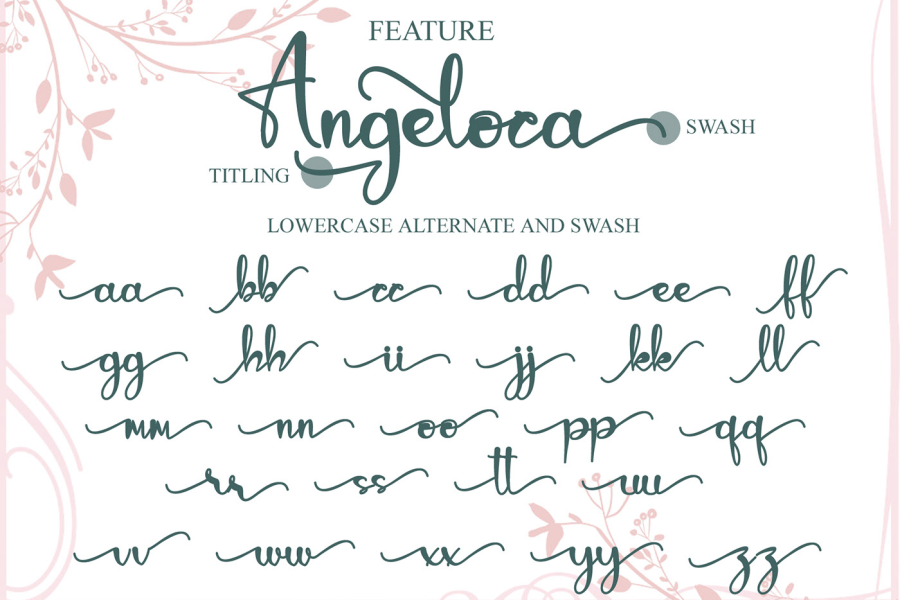 FEATURE
Angeloca
SWASH
TITLING
LOWERCASE ALTERNATE AND SWASH
aa bb cc dd ee ff
gg hh ii jj kk ll
mm nn oo pp qq
rr ss tt uu
vv ww xx yy zz